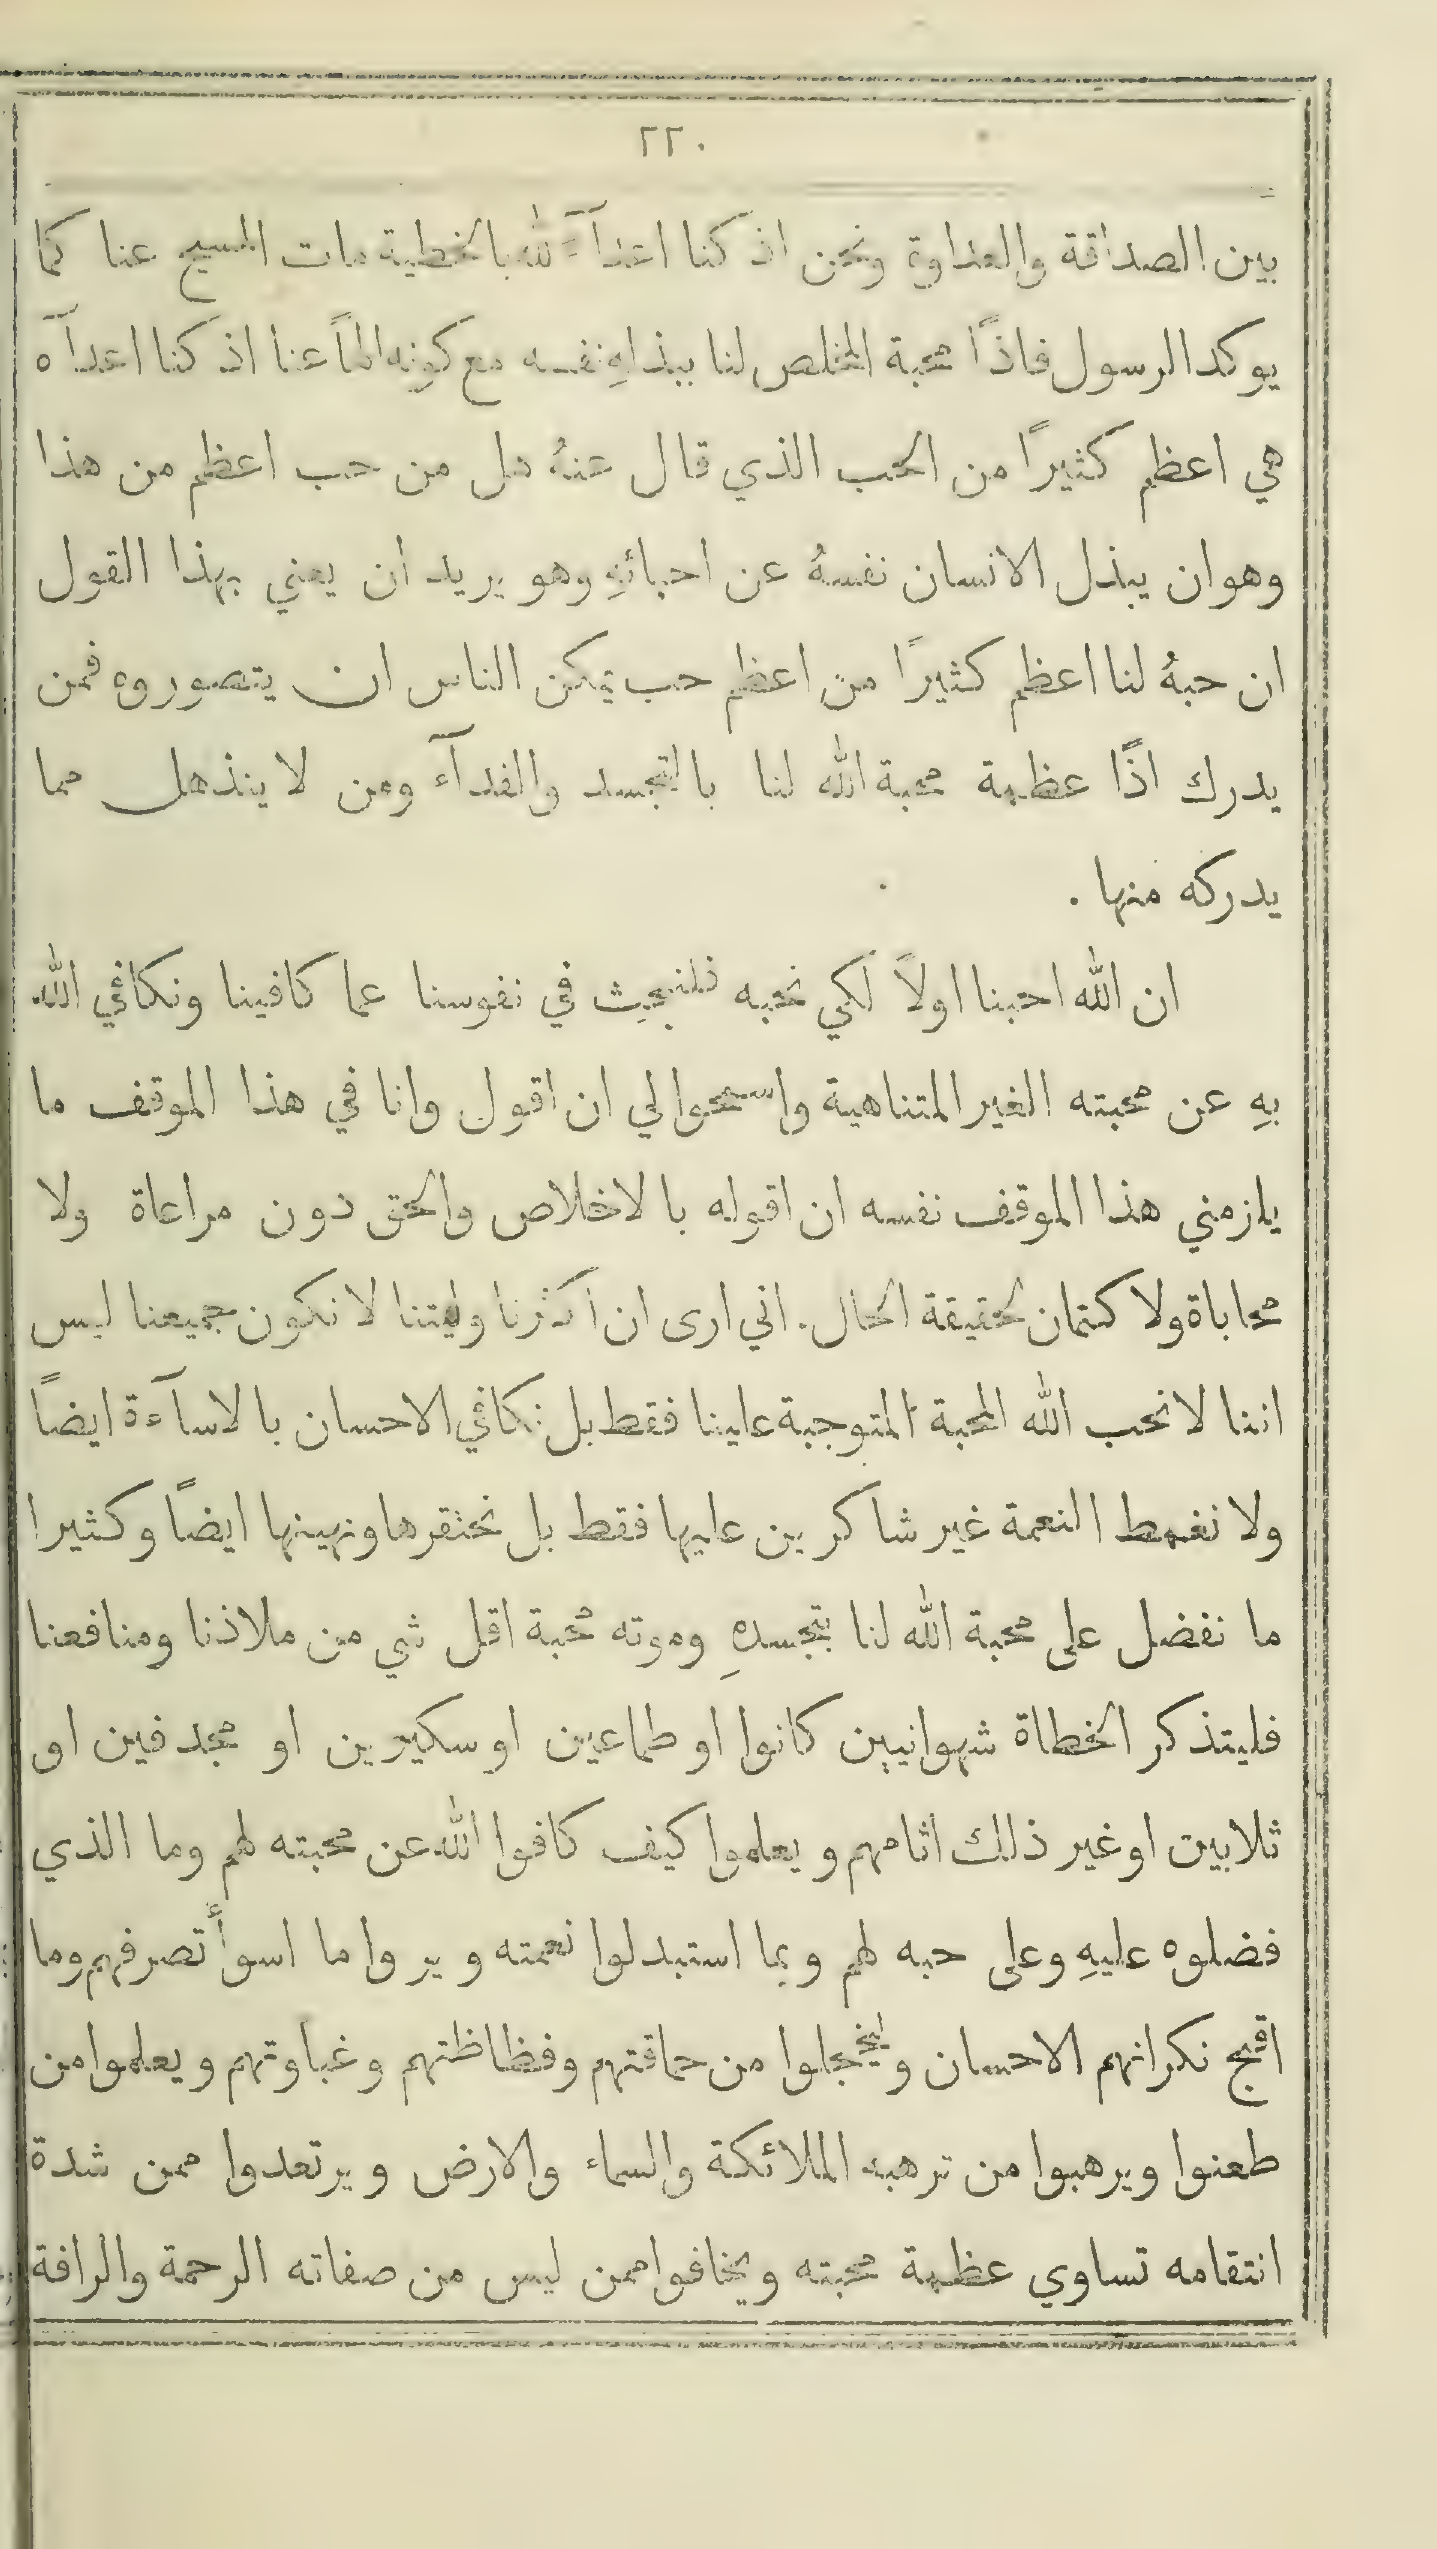 ٢٢٠
بين الصداقة والعداوة ونحن اذ كنا اعدآءَ لله بالخطية مات المسيح عنا كما
يوكد الرسول فاذًا محبة المخلص لنا ببذلهِ نفسه مع كونه الهًا عنا اذ كنا اعدآه
هي اعظم كثيرًا من الحب الذي قال عنهُ هل من حب اعظم من هذا
وهو ان يبذل الانسان نفسهُ عن احبائهِ وهو يريد ان يعني بهذا القول
ان حبهُ لنا اعظم كثيرًا من اعظم حب يمكن الناس ان يتصوروه فمن
يدرك اذًا عظمة محبة الله لنا بالتجسد والفدآء ومن لا ينذهل مما
يدركه منها .
ان الله احبنا اولاً لكي نحبه فلنبحث في نفوسنا عما كافينا ونكافي الله
بهِ عن محبته الغير المتناهية واسمحوا لي ان اقول وانا في هذا الموقف ما
يلزمني هذا الموقف نفسه ان اقوله بالاخلاص والحق دون مراعاة ولا
محاباة ولا كتمان لحقيقة الحال. اني ارى ان اكثرنا وليتنا لا نكون جميعنا ليس
اننا لا نحب الله المحبة المتوجبة علينا فقط بل نكافي الاحسان بالاسآءة ايضاً
ولا نغمط النعمة غير شاكرين عليها فقط بل نحتقرها ونهينها ايضًا وكثيرا
ما نفضل على محبة الله لنا بتجسدهِ وموته محبة اقل شي من ملاذنا ومنافعنا
فليتذكر الخطاة شهوانيين كانوا او طماعين او سكيرين او مجدفين او
ثلابين او غير ذلك اثامهم ويعلموا كيف كافوا الله عن محبته لهم وما الذي
فضلوه عليهِ وعلى حبه لهم وبما استبدلوا نعمته ويروا ما اسوأ تصرفهم وما
اقبح نكرانهم الاحسان وليخجلوا من حماقتهم وفظاظتهم وغباوتهم ويعلموا من
طعنوا ويرهبوا من ترهبه الملائكة والسماء والارض ويرتعدوا ممن شدة
انتقامه تساوي عظمة محبته ويخافوا ممن ليس من صفاته الرحمة والرافة